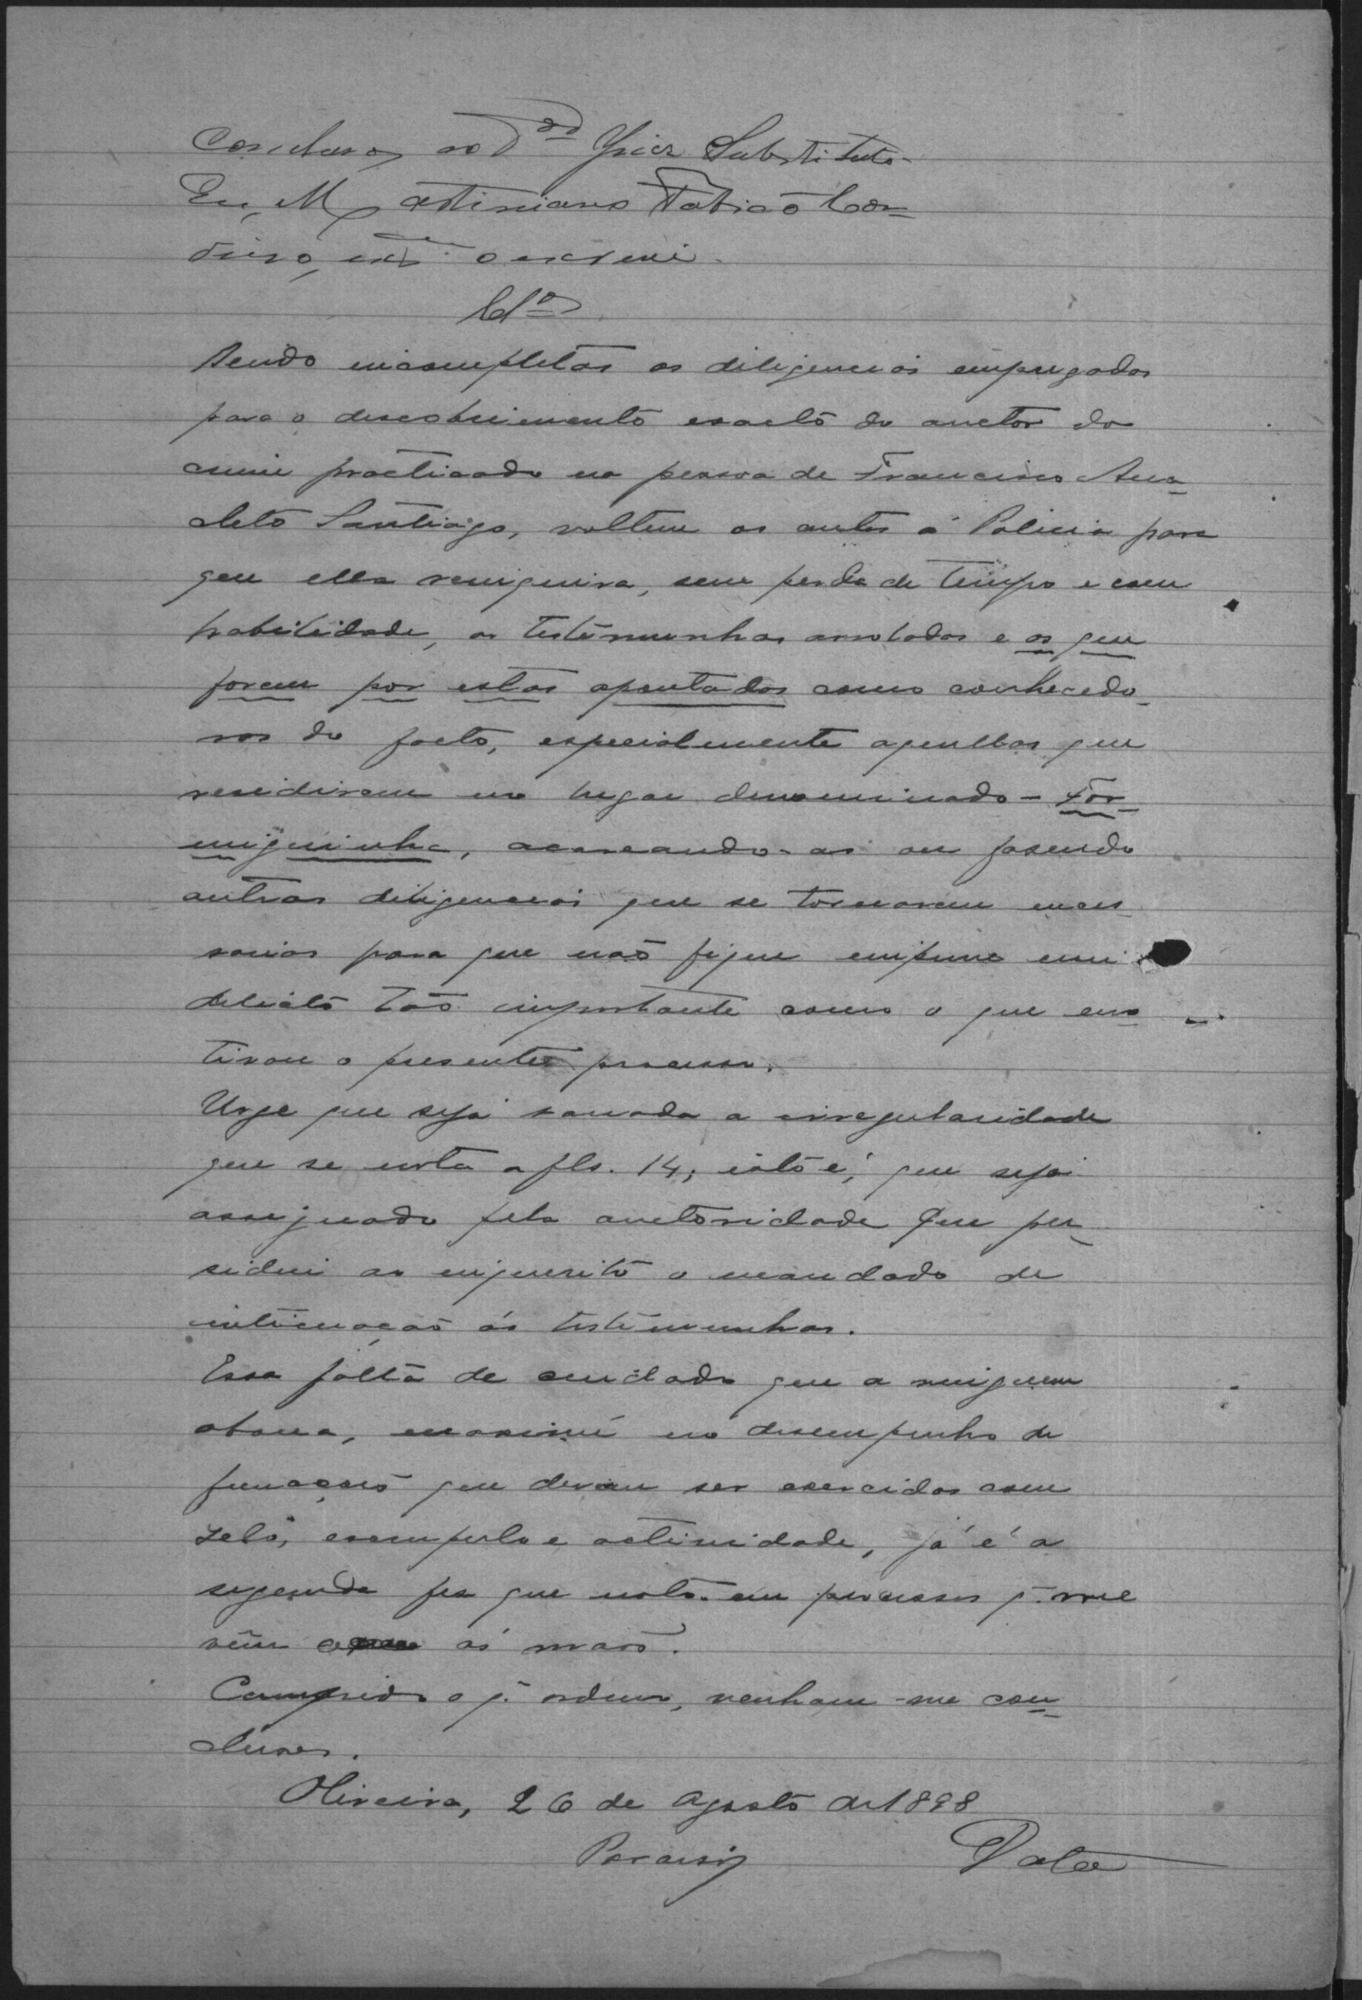 Conclusos ao Dr. Juiz Substituto.
Eu, Martiniano Fabião Cor-
deiro, o escrevi.
Cls.
Sendo incompletas as diligencias empregadas
para o descobrimento exacto do auctor do
crime practicado na pessoa de Francisco Ana-
cleto Santiago, voltem os autos á Policia para
que ella reinquira, sem perda de tempo e com
habilidade, as testemunhas arroladas e as que
forem por estas apontadas como conhecedo-
ras do facto, especialmente aquellas que
residirem no lugar denominado - For-
miguinha, acareando-as ou fasendo
outras diligencias que se tornarem neces-
sarias para que não fique impune um
delicto tão importante como o que mo-
tivou o presente processo.
Urge que seja sanada a irregularidade
que se nota a fls. 14; isto é, que seja
assignado pela auctoridade que pre-
sidiu ao inquerito o mandado de
intimação ás testemunhas.
Essa falta de cuidado que a ninguem
abona, maximé no desempenho de
funcções que devem ser exercidas com
zelo, escrupulo e actividade, já é a
segunda vez que noto em processos q. me
vêm ás mãos.
Cumprida a p. ordem, venham-me con-
clusos.
Oliveira, 26 de Agosto de 1898
Data